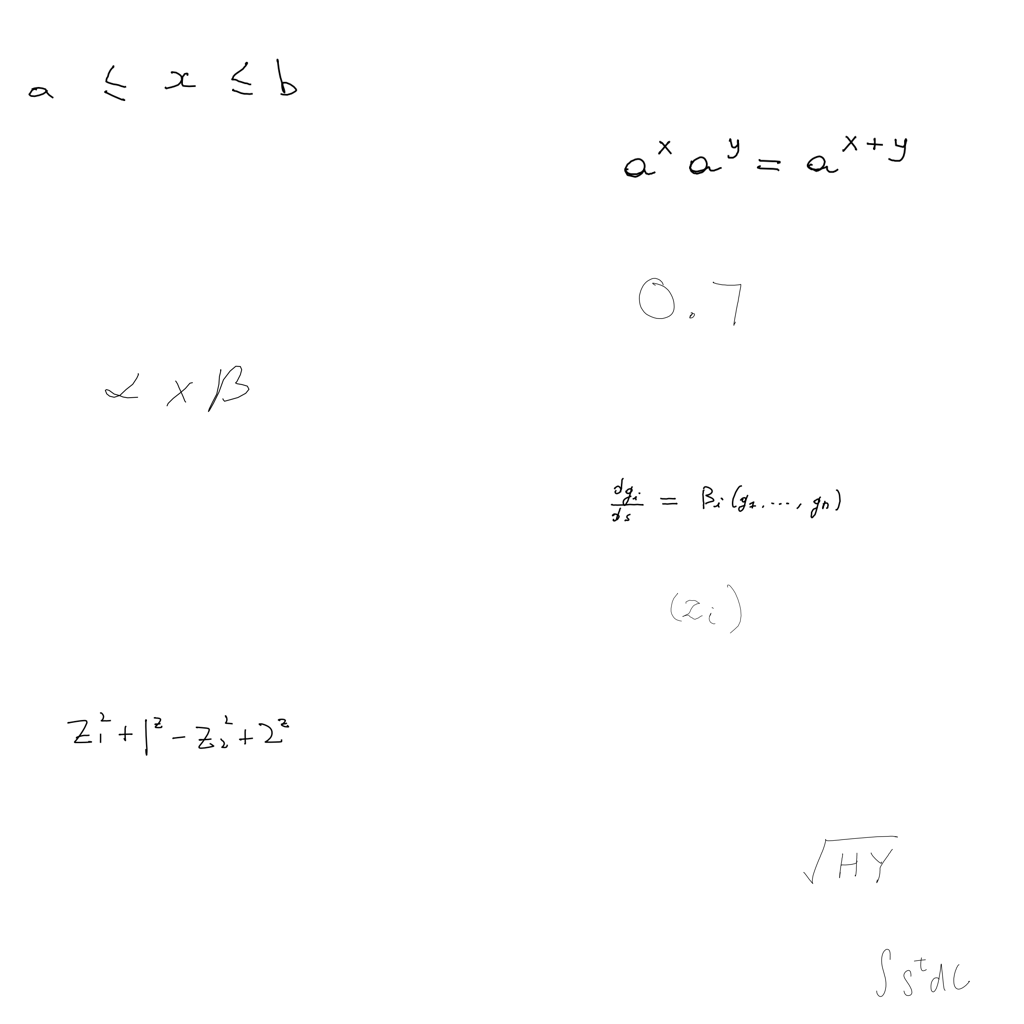 a ≤ x ≤ b
a^x a^y = a^{x+y}
0.7
α × β
\frac{dg_i}{ds} = β_i(g_1, ..., g_n)
(z_i)
z_1^2 + 1^z - z_2^2 + 2^z
\sqrt{HY}
∫ s^t dC